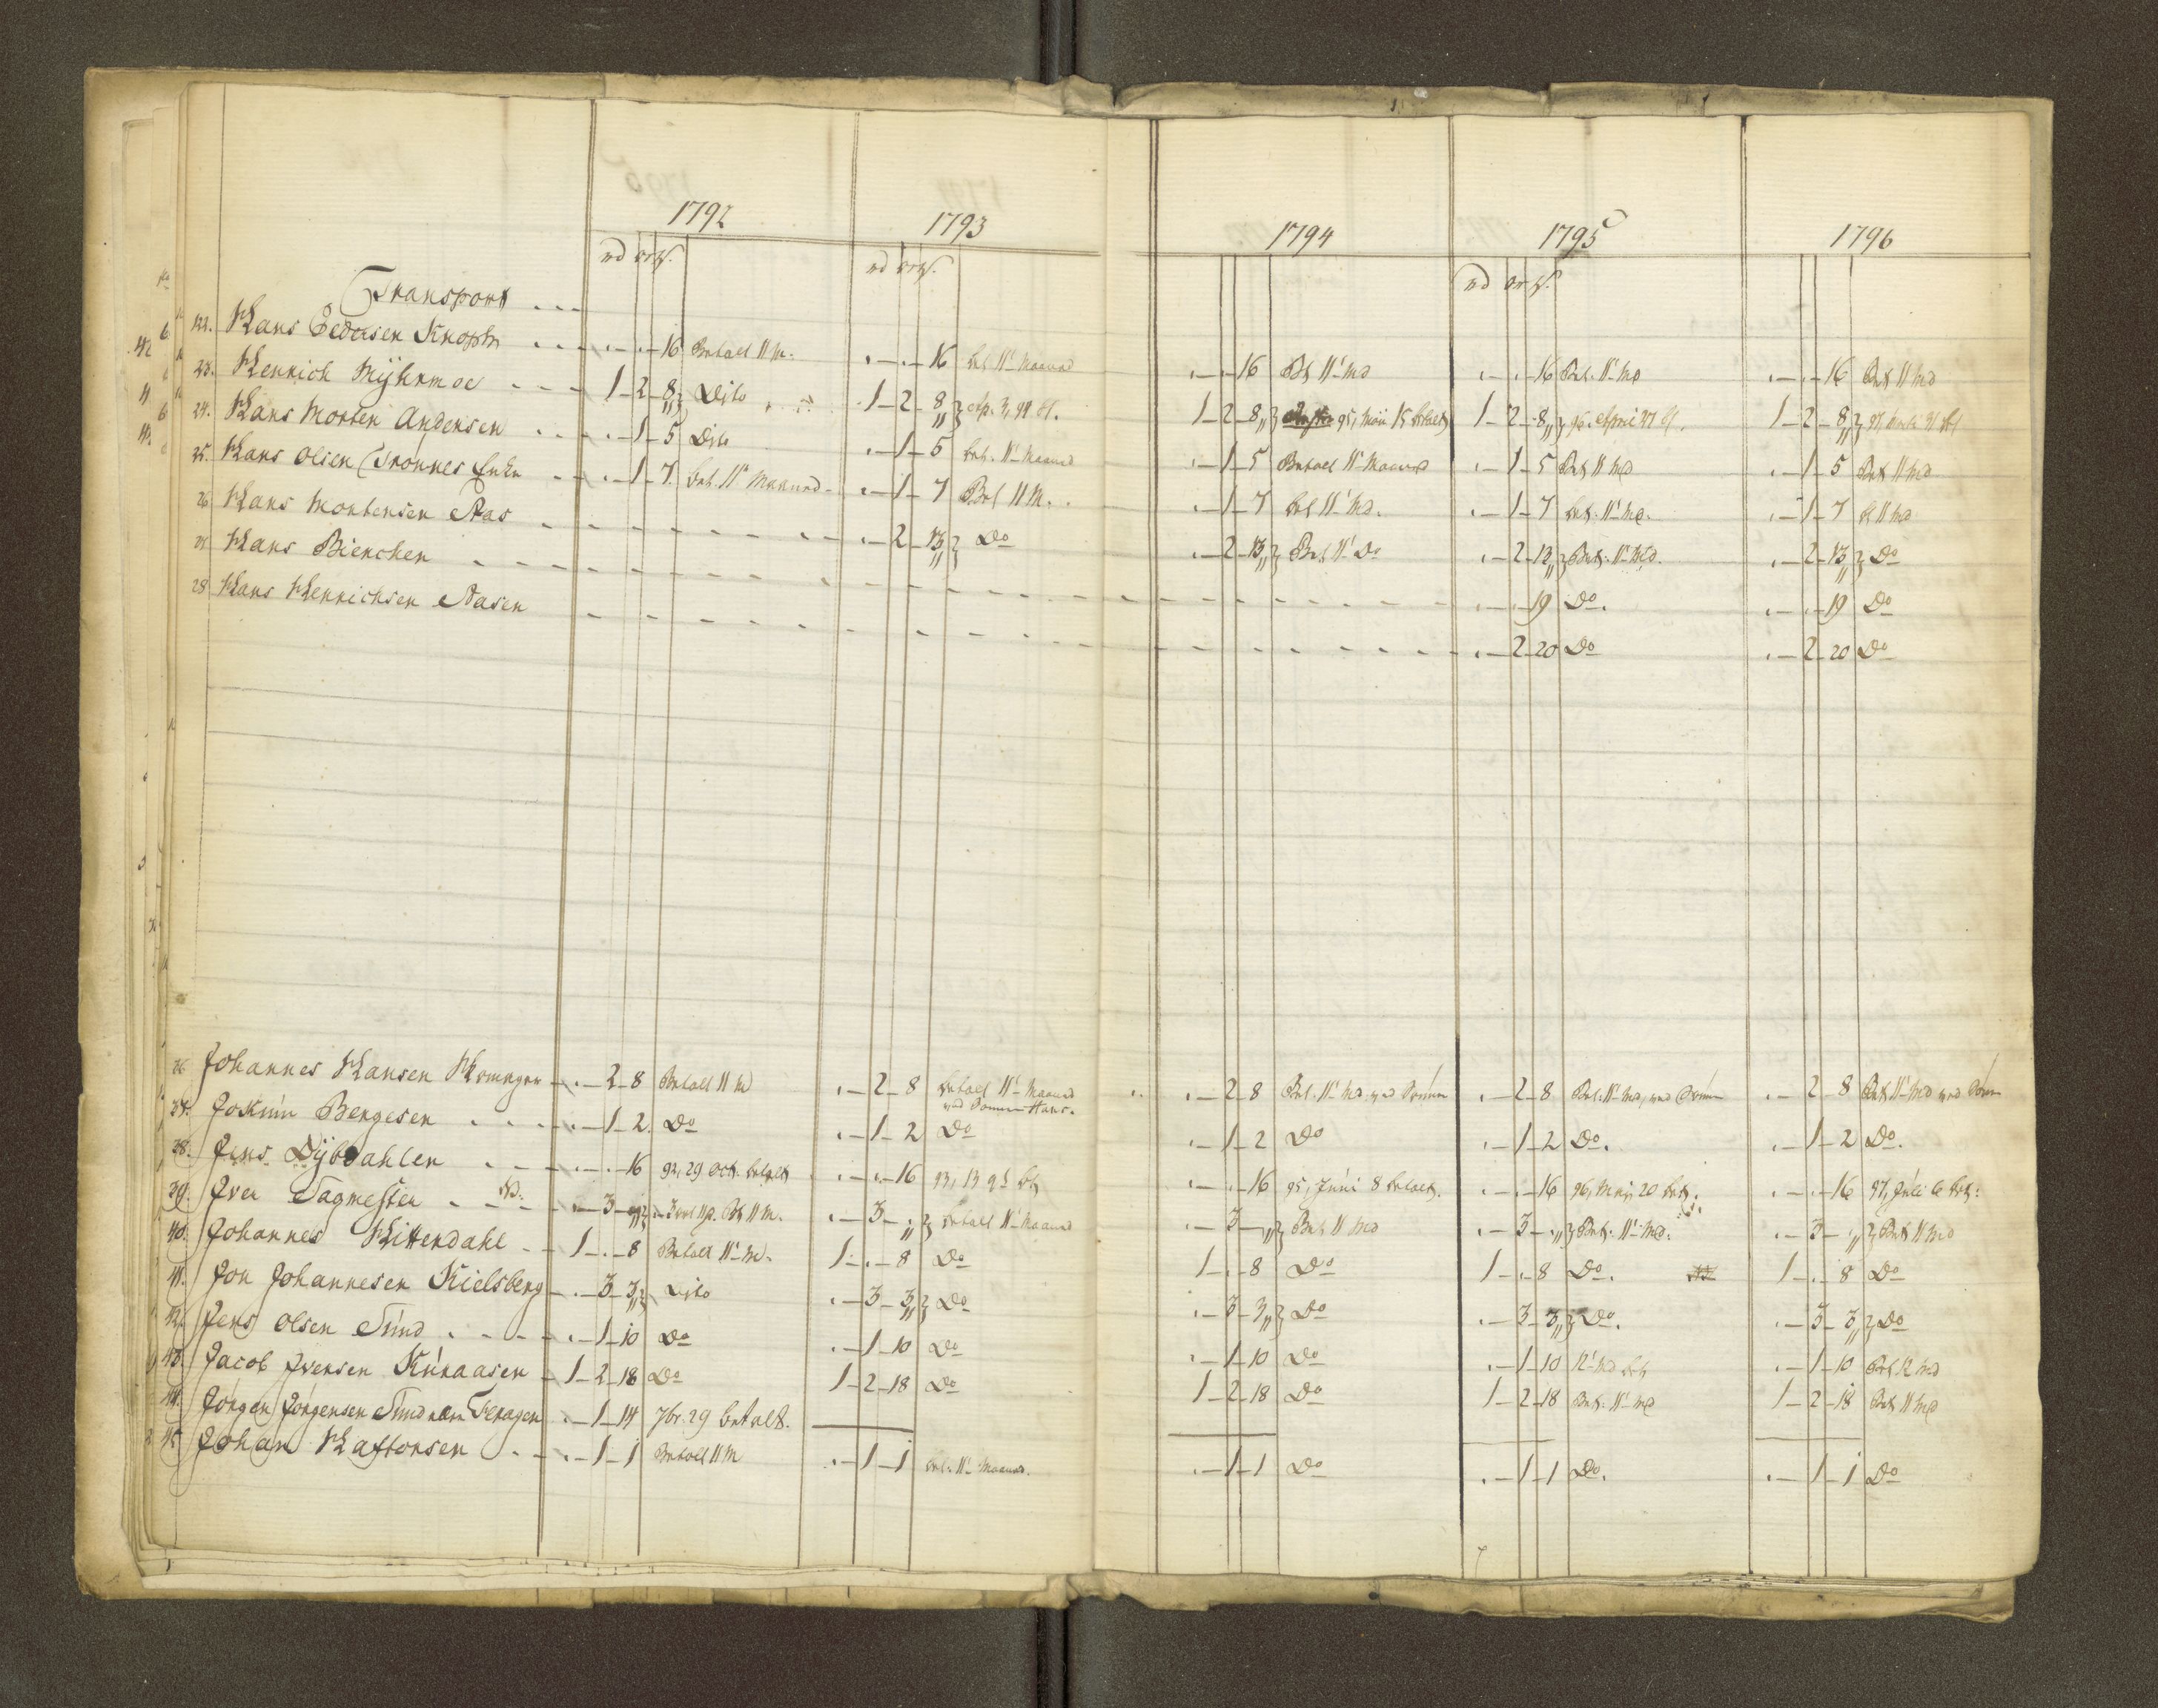 1792 1793 1794 1795 1796
rd ort s. rd ort s. rd ort s.
Transport
122. Hans Pedersen Knoph . - . - 16 Betalt 11 M. . - . - 16 bet 11' Maaned . - . - 16 Bet 11' Md . - . - 16 Bet. 11' Md . - . - 16 Bet 11 Md
23. Henrich Myhrmoe 1 - 2 - 8 Dito 1 - 2 - 8 Ap. 3, 94 bt. 1 - 2 - 8 95, Maii 15 betalt 1 - 2 - 8 96. April 27 bt. 1 - 2 - 8 97,
24. Hans Morten Andersen . - 1 - 5 Dito . - 1 - 5 bet. 11' Maaned . - 1 - 5 Betalt 11' Maaned . - 1 - 5 Bet 11 Md . - 1 - 5 Bet 11 Md
25. Hans Olsen Trønnes Enke . - 1 - 7. bet. 11' Maaned . - 1 - 7 Bet 11 M. . - 1 - 7 bet 11' Md. . - 1 - 7 bet. 11' Md. . - 1 - 7 bt 11 Md
26 Hans Mortensen Aas . - 2 - 13 Do . - 2 - 13 Bet 11' Do . - 2 - 13 Bet. 11' Md. . - 2 - 13 Do
27 Hans Bienchen . - . - 19 Do. . - . - 19 Do
28 Hans Henrichsen Aasen . - 2 - 20 Do . - 2 - 20 Do
36 Johannes Hansen . - 2 - 8 Betalt 11 M . - 2 - 8 betalt 11' Maaned . - 2 - 8 Bet. 11' Md. ved Sønnen . - 2 - 8 Bet. 11' Md, ved Sønnen . - 2 - 8 Bet 11' Md ved Sønn
ved Sønnen Hans.
37. Jochum Bengesen . - 1 - 2. Do . - 1 - 2 Do . - 1 - 2 Do . - 1 - 2 Do. . - 1 - 2 Do.
38. Jens Dybdahlen . - . - 16 92, 29 Oct. betalt . - . - 16 93, 13 bt . - . - 16 95, Juni 8 betalt. . - . - 16 96, Maj. 20 bet. . - . - 16 97, Juli 6 bet:
39. Iver Sagmester NB. . - 3 - Bt 11 M. . - 3 - . betalt 11' Maaned . - 3 - Bet 11 Md . - 3 - . Bet. 11' Md. . - 3 - . Bet 11 Md
40. Johannes Hittendahl 1 - . - 8 Betalt 11' M. 1 - . - 8 Do 1 - . - 8 Do 1 - . - 8 Do. 1 - . - 8 Do
41. Jon Johannesen Kielsberg . - 3 - 3 Dito . - 3 - 3 Do . - 3 - 3 Do . - 3 - 3 Do. . - 3 - 3 Do
42. Jens Olsen Sund . - 1 - 10 Do . - 1 - 10 Do . - 1 - 10 Do . - 1 - 10 12' Md bet . - 1 - 10 Bet 12 Md
43. Jacob Iversen Kuraasen 1 - 2 - 18 Do 1 - 2 - 18 Do 1 - 2 - 18 Do 1 - 2 - 18 Bet. 11' Md 1 - 2 - 18 Bet 11 Md
44. Jørgen Jørgensen Sund Feragen . - 1 - 14 7br. 29 betalt.
45 Johan Haftorsen . - 1 - 1 Betalt 11 M . - 1 - 1 bet. 11' Maaned. . - 1 - 1 Do . - 1 - 1 Do. . - 1 - 1 Do